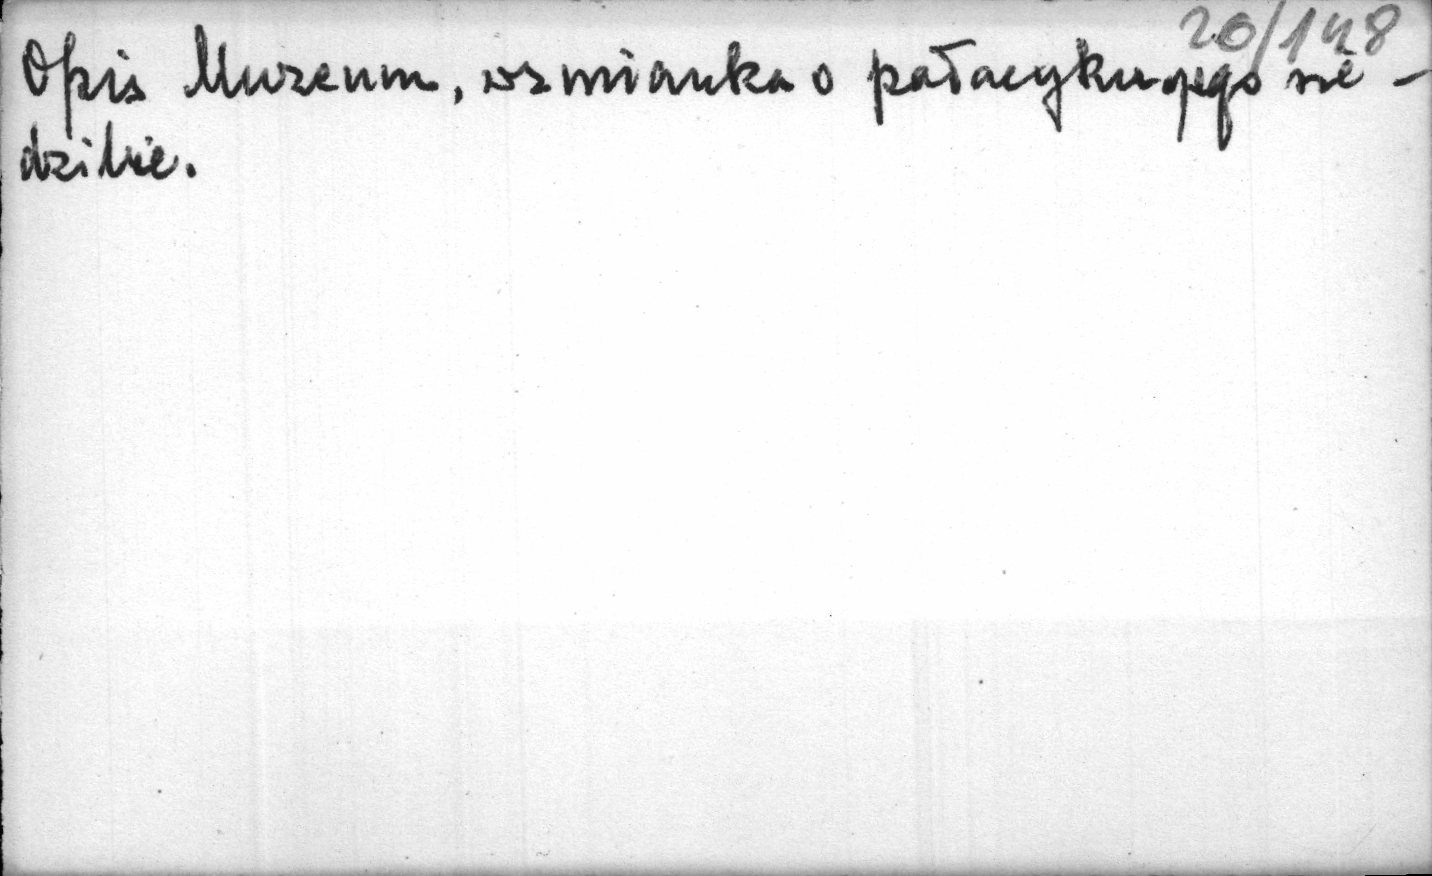 20/148
Opis Muzeum, wzmianka o pałacyku jego sie-
dzibie.